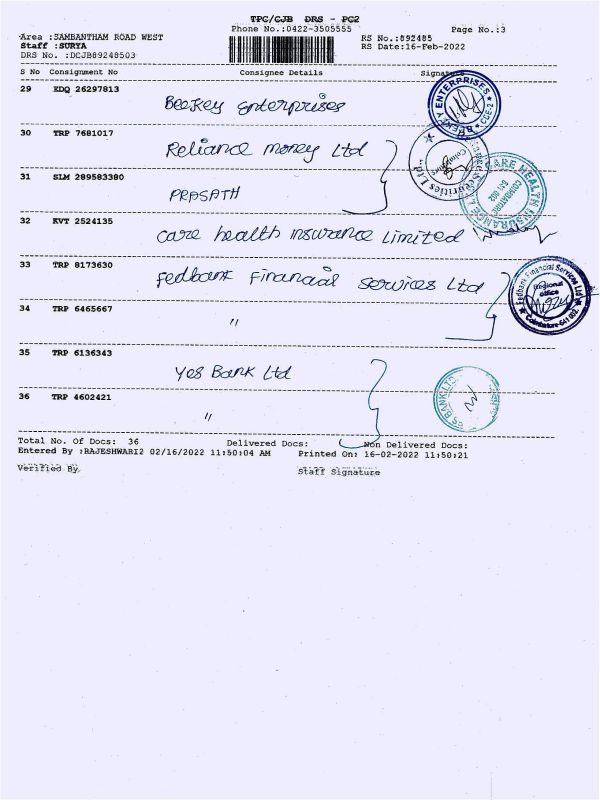 TPC/CJB DRS - PC2
Phone No.:0422-3505555
Page No.:3
Area :SAMBANTHAM ROAD WEST
RS No.:892485
Staff :SURYA
RS Date:16-Feb-2022
DRS No. :DCJB89248503
S No Consignment No Consignee Details Signature
29 EDQ 26297813
Beekey enterprises
BEEKEY ENTERPRISES
CBE-2
30 TRP 7681017
Reliance money Ltd
Securities Ltd
Coimbatore
31 SLM 289583380
PRASATH
CARE HEALTH INSURANCE
COIMBATORE
641 002
32 KVT 2524135
care health insurance Limited
33 TRP 8173630
Fedbank Financial Services Ltd
Fedbank Financial Services Ltd
Regional
Office
Coimbatore-641 002
34 TRP 6465667
"
35 TRP 6136343
Yes Bank Ltd
ES BANK LTD
36 TRP 4602421
"
Total No. Of Docs: 36 Delivered Docs: Non Delivered Docs:
Entered By :RAJESHWARI2 02/16/2022 11:50:04 AM Printed On: 16-02-2022 11:50:21
Verified By
Staff Signature